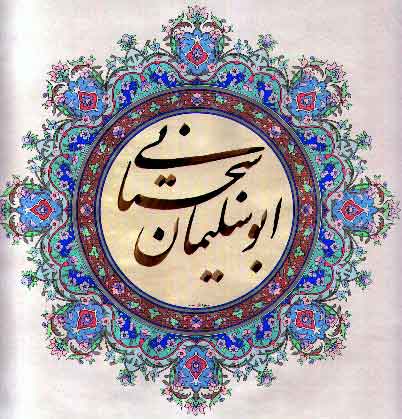 ابوسلیمان
سجستانی